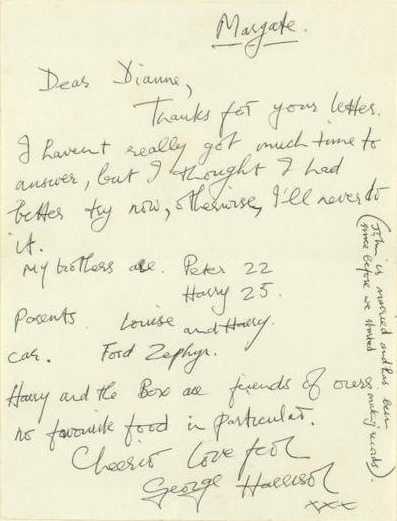 Margate.
Dear Dianne,
Thanks for your letter.
I havent really got much time to
answer, but I thought I had
better try now, otherwise, I'll never do
it.
My brothers are. Peter 22
Harry 25.
Parents Louise and Harry.
Car. Ford Zephyr.
Harry and the Box are friends of ours
no favourite food in particular.
Cheerio Love from
George Harrison
xxx
(John is married and has been
since before we started making records).